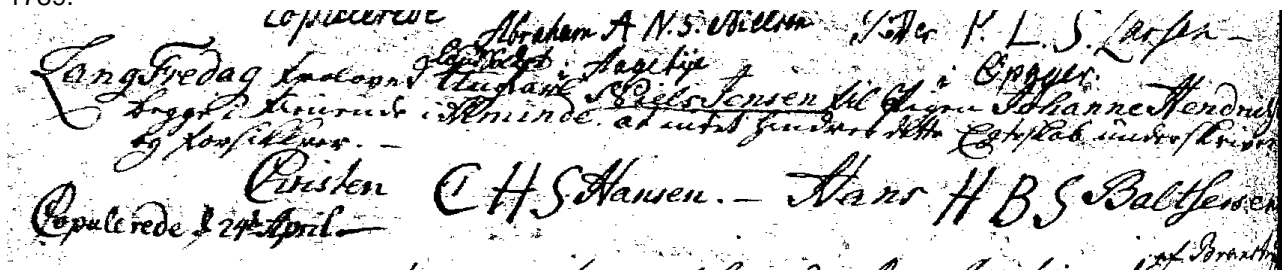 1789.
Copulerede Abraham A N. S. Nielsen Peder P. L. S. Larsen –
Landsoldat i Aagebye i Opager.
Lang Fredag trolovet Ungkarl Niels Jensen til Pigen Johanne Hendrichs
begge tienende i Alminde. at intet hindrer dette Egteskab underskriver
og forsikkrer. –
Christen C H S Hansen. – Hans H B S Balthersen
Copulerede d 24de April. –
af Bramdr